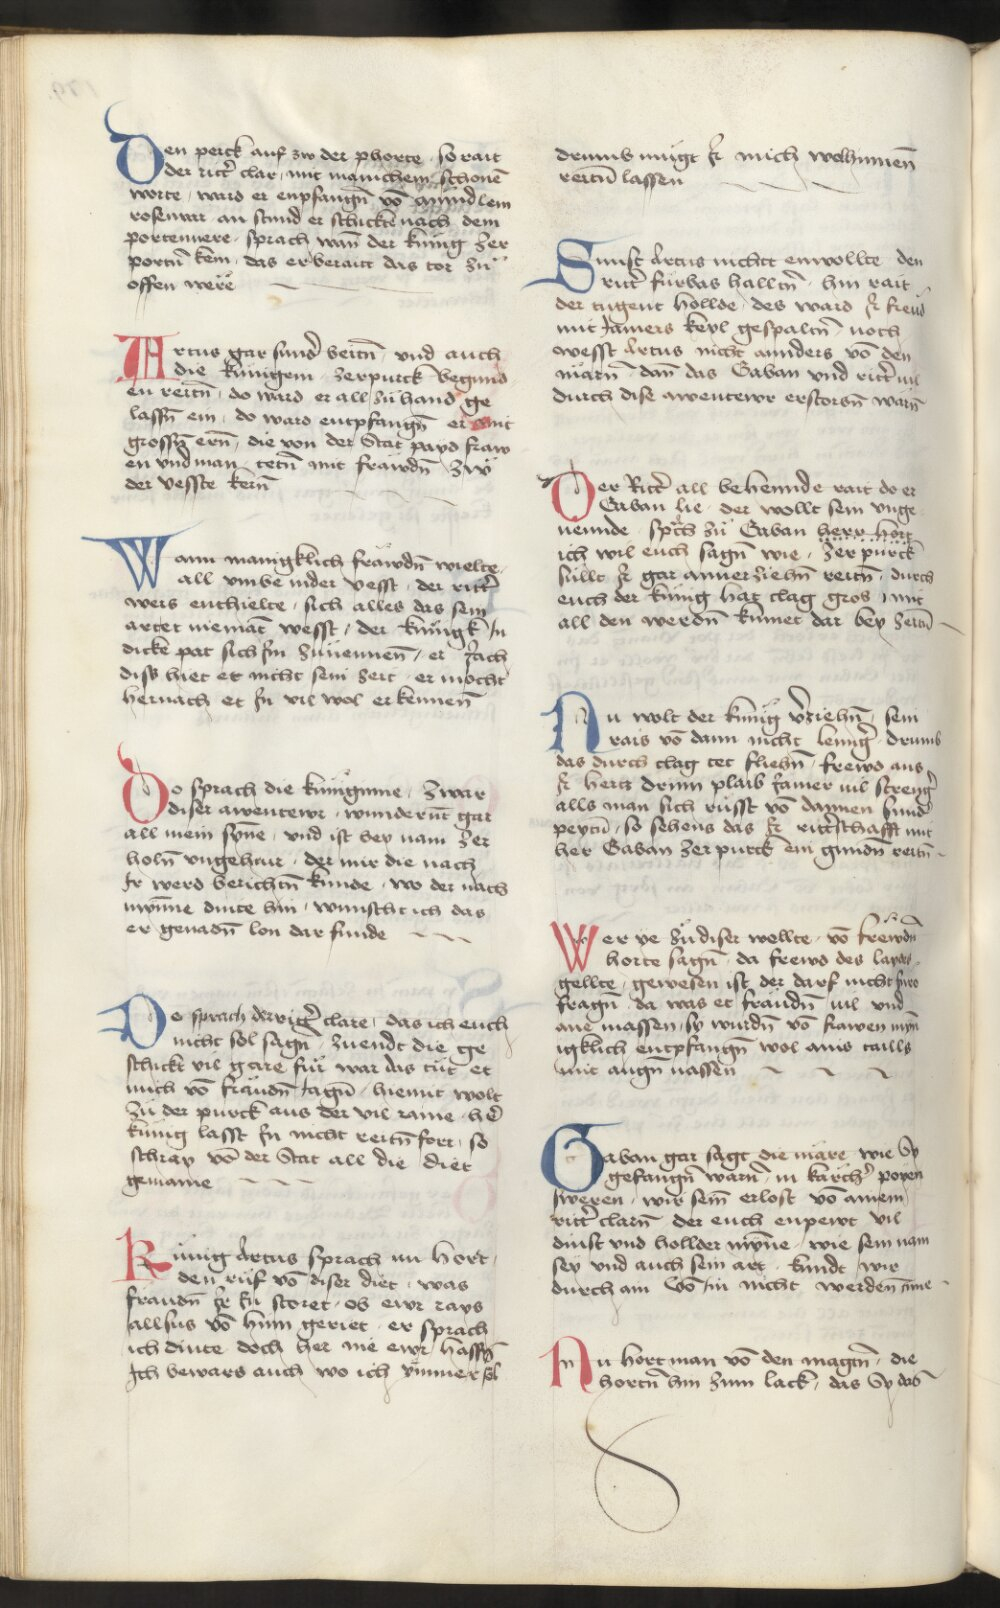 Den perck auf zw der phorte · so rait
der rittʼ clar · mit manichem schonē
worte · ward er enpfangn̄ vō mūndlem
rosenvar an stund er schickte nach dem
portennere · sprach wan̄ der kunig zer
portn̄ kem · das er berait das tor zu
offen were
Artus gar sundʼ beitn̄ · und auch
die kunigein · zerpurck begund
en reitn̄ · do ward er all zu hand ge
lassn̄ ein · do ward entpfangn̄ er mit
grossn̄ ern̄ · die von der Stat payd fraw
en vnd man tetn̄ mit frawdn̄ zw
der vesste kern̄
Wann manigklich frawdn̄ wielte ·
all vmbe inder vesst · der rittʼ
weis enthielte · sich alles das sein
artet niemāt wesst · der kunigk in
dicke pat sich im zu nennen̄ · er jach
diss hiet er nicht sein zeit · er mocht
hernach et in vil wol erkennen̄
Do sprach die kuniginne · zwar
diser awentewr · wundernt gar
all mein synne · vnd ist bey nam zer
holn̄ vngeheur · der mir die nach
ir werd berichtn̄ kunde · wo der nach
mynne dinte hin · wunscht ich das
er genadn̄ lon dar funde
Do sprach der rittʼ clare · das ich euch
nicht sol sagn̄ · zuendt die ge
schickt vil gere fur war das tut et
mich vō fraudn̄ jagn̄ · hiemit wolt
zu der purck aus der vil raine · hʼe
kunig lasst in nicht reitn̄ fort · so
schray vō der Stat all die diet
gemaine
Kunig Artus sprach nu hort ·
den ruf vō diser diet · was
fraudn̄ ir in storet · ob ewr rays
allsus vō hinn geriet · er sprach
ich dinte doch her nie ewr hassn̄
Ich bewars auch wo ich ymmer sol
drumb mugt ir mich wol hinnen̄
reitn̄ lassen
Sunst Artus nicht enwollte den
rittʼ furbas halltn̄ · hin rait
der tugent hollde · des ward ir freud
mit jamers keyl gespaltn̄ noch
wesst Artus nicht annders vō den
marn̄ · dan̄ das Gaban vnd rittʼ vil
durch dise awentewr erstorbn̄ warn̄
Der Rittʼ all behennde rait do er
Gaban lie · der wollt sein unge
nennde · sprach zu Gaban herr hort
ich wil euch sagn̄ wie · zer purck
sullt ir gar vnuerziehn̄ reitn̄ · durch
euch der kunig hat clag gros · mit
all den werdn̄ kumet dar bey zeitn̄
Nu wolt der kunig vʼziehn̄ · sein
rais vō dann nicht lenngʼ · drumb
das durch clag tet fliehn̄ · frewd aus
ir hertz drinn plaib jamer vil strengʼ
alls man sich russt vō dannen sund
peytn̄ · so sehens das ir rittʼschafft mit
her Gaban zer purck ein gundn̄ reitn̄
Wer ye zu diser wellte · vō frewdn̄
horte sagn̄ · da frewd des laydes
gellte · gewesen ist der darf nicht furo
fragn̄ · da was et fraudn̄ vil vnd
ane massen · sy wurdn̄ vō frawen myn
igklich entpfangn̄ wol ains taills
mit augn̄ nassen
Gaban gar sagt die mare wie Sy
gefangn̄ warn̄ · in karchʼ poyen
sweren · wir sein erlost vō ainem
rittʼ clarn̄ der euch enpewt vil
dinst vnd hollder mynne · wie sein nam
sey vnd auch sein art · kundt wir
durch ain Vō in nicht werden inne
Nu hort man vō den magtn̄ · die
hortn̄ hin zum lack · das Sy das